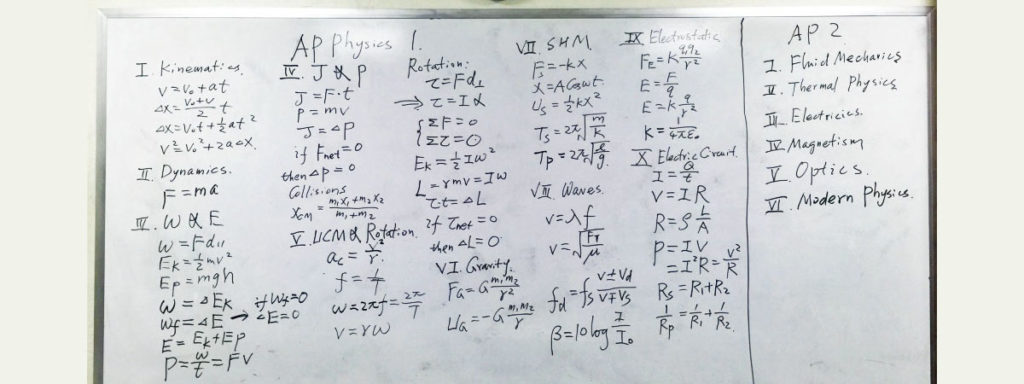 AP Physics 1.
I. Kinematics.
V = V₀ + at
ΔX = (V₀+V)/2 t
ΔX = V₀t + ½at²
V² = V₀² + 2aΔX.
II. Dynamics.
F = ma
IV. W & E
W = Fd∥
Eₖ = ½mv²
Eₚ = mgh
W = ΔEₖ
Wf = ΔE → if Wf = 0 ΔE = 0
E = Eₖ + Eₚ
P = W/t = FV
IV. J & P
J = F·t
P = mv
J = ΔP
if Fnet = 0
then ΔP = 0
Collisions
Xcm = (m₁X₁+m₂X₂)/(m₁+m₂)
V. UCM & Rotation.
ac = v²/r
f = 1/T
ω = 2πf = 2π/T
V = rω
Rotation:
τ = Fd⊥
⇒ τ = Iα
{ΣF = 0
Στ = 0
Eₖ = ½Iω²
L = rmv = Iω
τ·t = ΔL
if τnet = 0
then ΔL = 0
VI. Gravity.
FG = G m₁m₂/r²
UG = -G m₁m₂/r
VII. SHM
Fs = -kx
X = A cos ωt.
Us = ½kx²
Ts = 2π√(m/k)
Tp = 2π√(ℓ/g)
VIII. Waves.
v = λf
v = √(FT/μ)
fd = fs (V±Vd)/(V∓Vs)
β = 10 log I/I₀
IX Electrostatic
FE = K q₁q₂/r²
E = F/q
E = K q/r²
K = 1/4πε₀
X Electric Circuit.
I = Q/t
V = IR
R = ρ L/A
P = IV
= I²R = V²/R
Rs = R₁ + R₂
1/Rp = 1/R₁ + 1/R₂
AP 2
I. Fluid Mechanics
II. Thermal Physics
III. Electricics.
IV. Magnetism
V. Optics.
VI. Modern Physics.